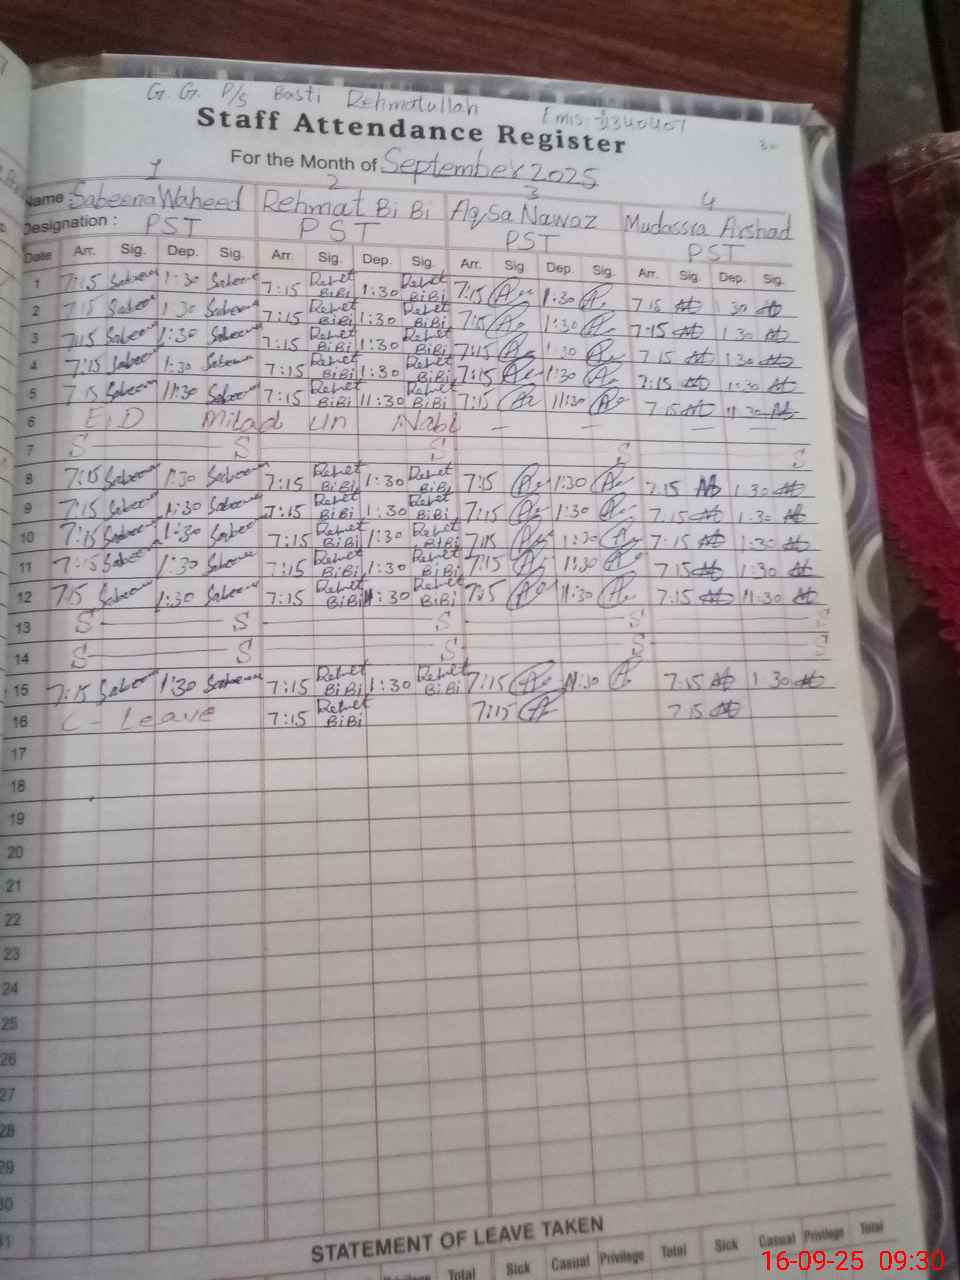 G. G. P/s Basti Rehmatullah
Emis:-
Staff Attendance Register
30
For the Month of September 2025
1 2 3 4
Name Sabeena Waheed Rehmat Bi Bi Aqsa Nawaz Mudassra Arshad
Designation : PST PST PST PST
Date Arr. Sig. Dep. Sig. Arr. Sig. Dep. Sig. Arr. Sig. Dep. Sig. Arr. Sig. Dep. Sig.
1 7:15 Sabeena 1:30 Sabeena 7:15 Rehmat BiBi 1:30 Rehmat BiBi 7:15 1:30 7:15 1:30
2 7:15 Sabeena 1:30 Sabeena 7:15 Rehmat BiBi 1:30 Rehmat BiBi 7:15 1:30 7:15 1:30
3 7:15 Sabeena 1:30 Sabeena 7:15 Rehmat BiBi 1:30 Rehmat BiBi 7:15 1:30 7:15 1:30
4 7:15 Sabeena 1:30 Sabeena 7:15 Rehmat BiBi 1:30 Rehmat BiBi 7:15 1:30 7:15 1:30
5 7:15 Sabeena 11:30 Sabeena 7:15 Rehmat BiBi 11:30 Rehmat BiBi 7:15 11:30 7:15 11:30
6 EiD Milad Un Nabi — — — —
7 S S S S S
8 7:15 Sabeena 1:30 Sabeena 7:15 Rehmat BiBi 1:30 Rehmat BiBi 7:15 1:30 7:15 1:30
9 7:15 Sabeena 1:30 Sabeena 7:15 Rehmat BiBi 1:30 Rehmat BiBi 7:15 1:30 7:15 1:30
10 7:15 Sabeena 1:30 Sabeena 7:15 Rehmat BiBi 1:30 Rehmat BiBi 7:15 1:30 7:15 1:30
11 7:15 Sabeena 1:30 Sabeena 7:15 Rehmat BiBi 1:30 Rehmat BiBi 7:15 11:30 7:15 1:30
12 7:15 Sabeena 1:30 Sabeena 7:15 Rehmat BiBi 11:30 Rehmat BiBi 7:15 11:30 7:15 11:30
13 S S S S S
14 S S S S S
15 7:15 Sabeena 1:30 Sabeena 7:15 Rehmat BiBi 1:30 Rehmat BiBi 7:15 11:30 7:15 1:30
16 C - Leave 7:15 Rehmat BiBi 7:15 7:15
17
18
19
20
21
22
23
24
25
26
27
28
29
30
31
STATEMENT OF LEAVE TAKEN
Privilege Total Sick Casual Privilege Total Sick Casual Privilege Total
16-09-25 09:30